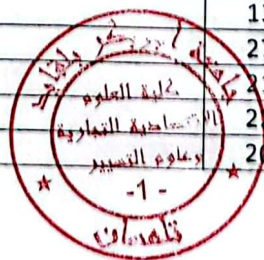 جامعة أبو بكر بلقايد
كلية العلوم
الاقتصادية التجارية
وعلوم التسيير
- 1 -
تلمسان